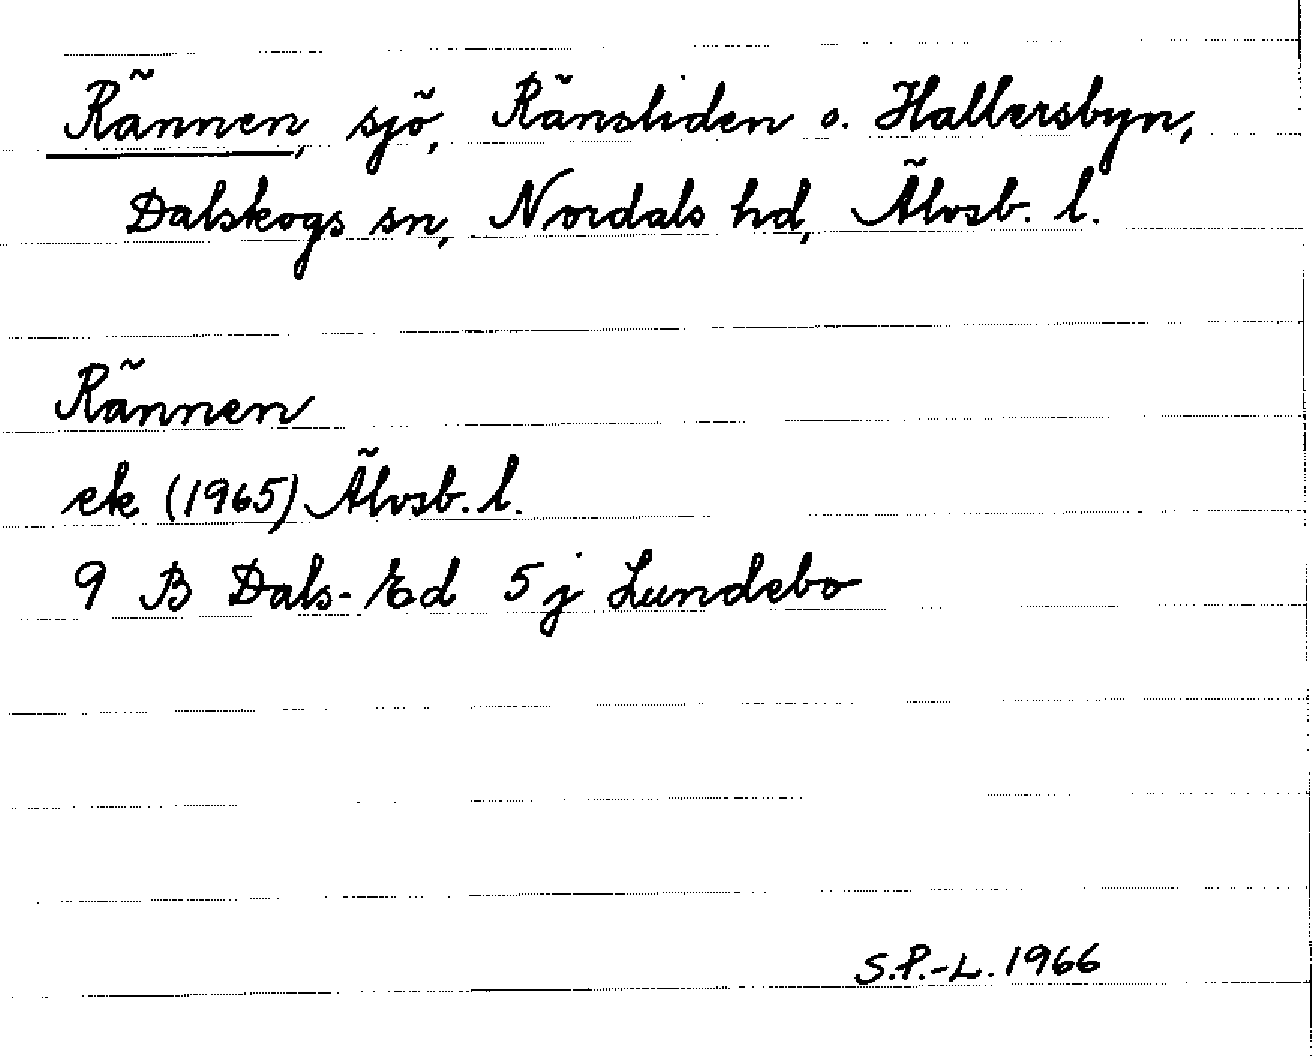 Rännen, sjö, Ränsliden o. Hallersbyn,
Dalskogs sn, Nordals hd, Älvsb. l.
Rännen
ek (1965) Älvsb. l.
9 B Dals-Ed 5 j Lundebo
S.P.-L. 1966